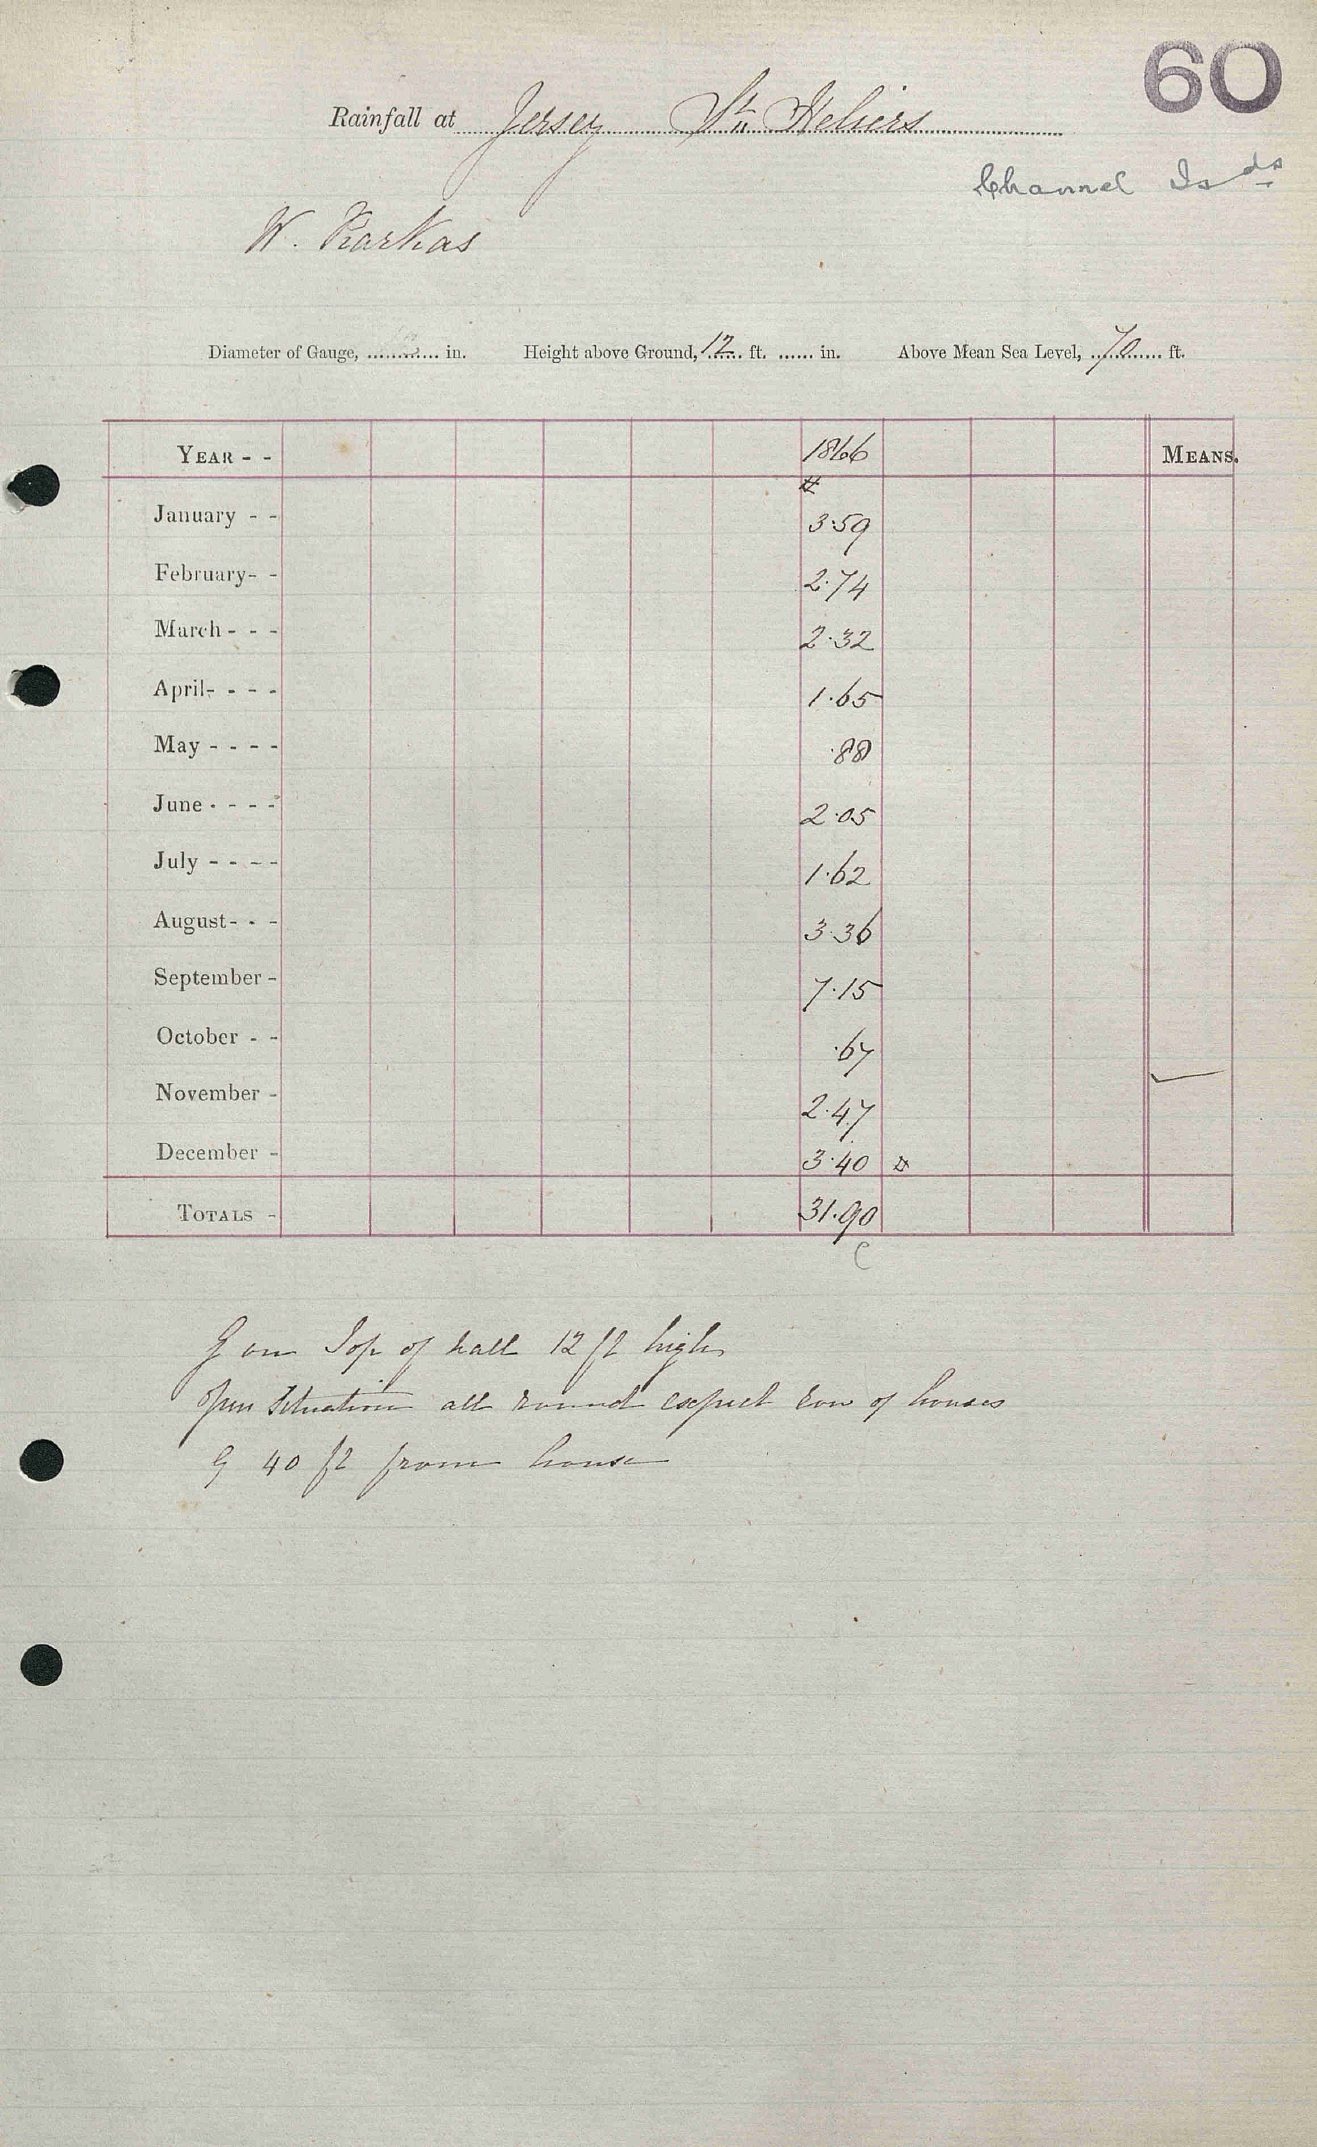 60
Rainfall at Jersey St. Heliers
Channel Isds
W. Karkas
Diameter of Gauge, ............ in. Height above Ground, 12 ft. ...... in. Above Mean Sea Level, 70 ft.
YEAR - - 1866 MEANS.
#
January - - 3.59
February- - 2.74
March - - - 2.32
April- - - - 1.65
May - - - - .88
June - - - - 2.05
July - - - - 1.62
August- - - 3.36
September - 7.15
October - - .67
November - 2.47
December - 3.40
TOTALS - 31.90
G on Top of wall 12 ft high
Open Situation all round except row of houses
G 40 ft from house